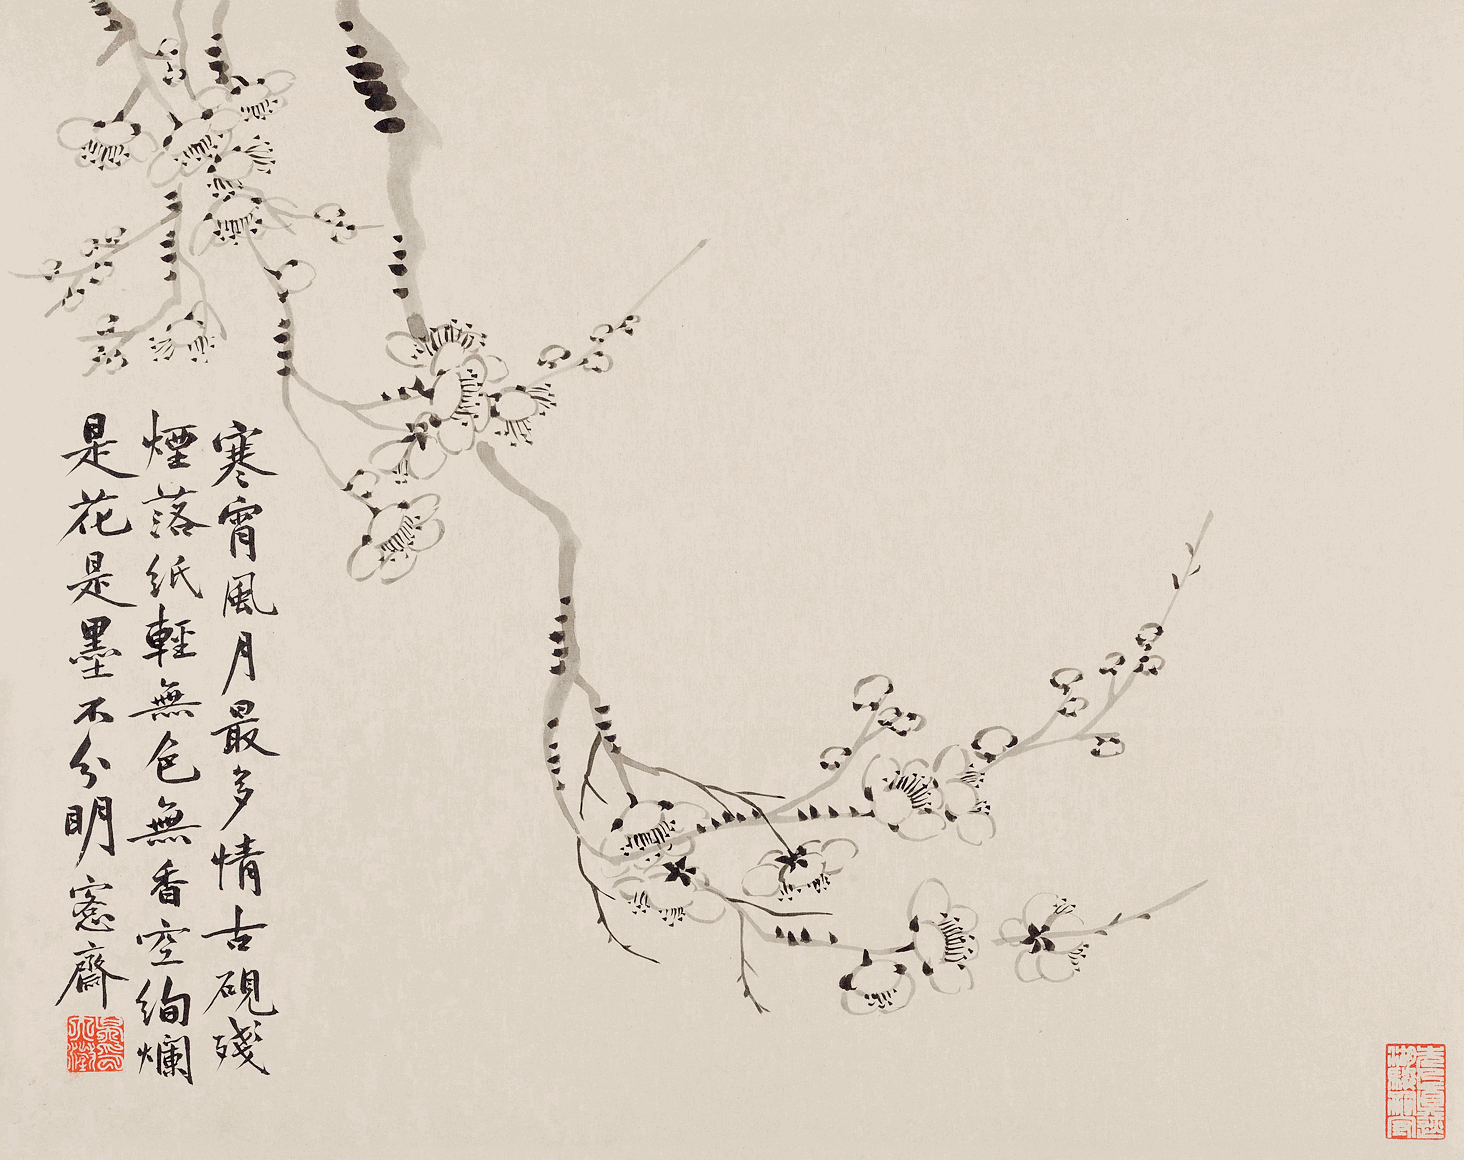 寒宵風月最多情古硯殘
煙落紙輕無色無香空絢爛
是花是墨不分明 窸齋